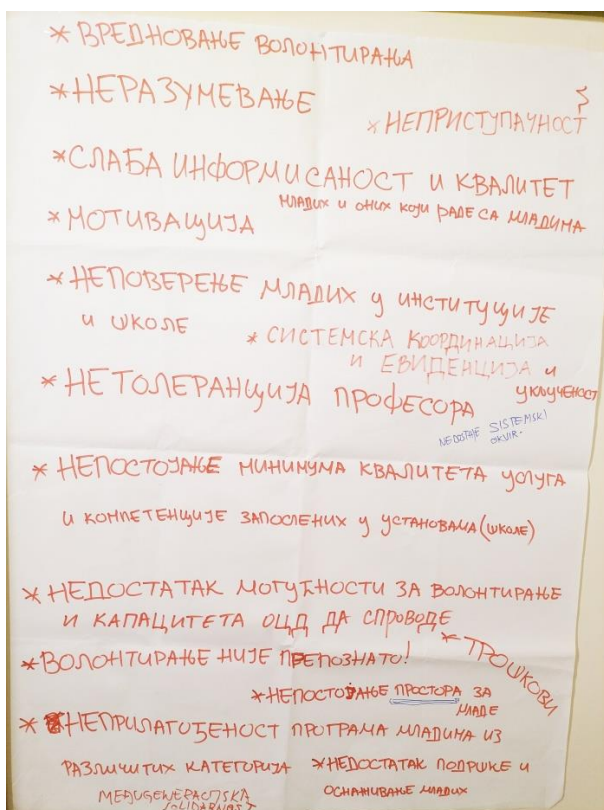 * ВРЕДНОВАЊЕ ВОЛОНТИРАЊА
* НЕРАЗУМЕВАЊЕ
* НЕПРИСТУПАЧНОСТ
* СЛАБА ИНФОРМИСАНОСТ И КВАЛИТЕТ
МЛАДИХ И ОНИХ КОЈИ РАДЕ СА МЛАДИМА
* МОТИВАЦИЈА
* НЕПОВЕРЕЊЕ МЛАДИХ У ИНСТИТУЦИЈЕ
И ШКОЛЕ
* СИСТЕМСКА КООРДИНАЦИЈА
И ЕВИДЕНЦИЈА И
УКЉУЧЕНОСТ
* НЕТОЛЕРАНЦИЈА ПРОФЕСОРА
NEDOSTAJE SISTEMSKI
OKVIR.
* НЕПОСТОЈАЊЕ МИНИМУМА КВАЛИТЕТА УСЛУГА
И КОМПЕТЕНЦИЈЕ ЗАПОСЛЕНИХ У УСТАНОВАМА (ШКОЛЕ)
* НЕДОСТАТАК МОГУЋНОСТИ ЗА ВОЛОНТИРАЊЕ
И КАПАЦИТЕТА ОЦД ДА СПРОВОДЕ
* ВОЛОНТИРАЊЕ НИЈЕ ПРЕПОЗНАТО!
* ТРОШКОВИ
* НЕПОСТОЈАЊЕ ПРОСТОРА ЗА
МЛАДЕ
* НЕПРИЛАГОЂЕНОСТ ПРОГРАМА МЛАДИМА ИЗ
РАЗЛИЧИТИХ КАТЕГОРИЈА
* НЕДОСТАТАК ПОДРШКЕ И
ОСНАЖИВАЊЕ МЛАДИХ
MEĐUGENERACIJSKA
SOLIDARNOST